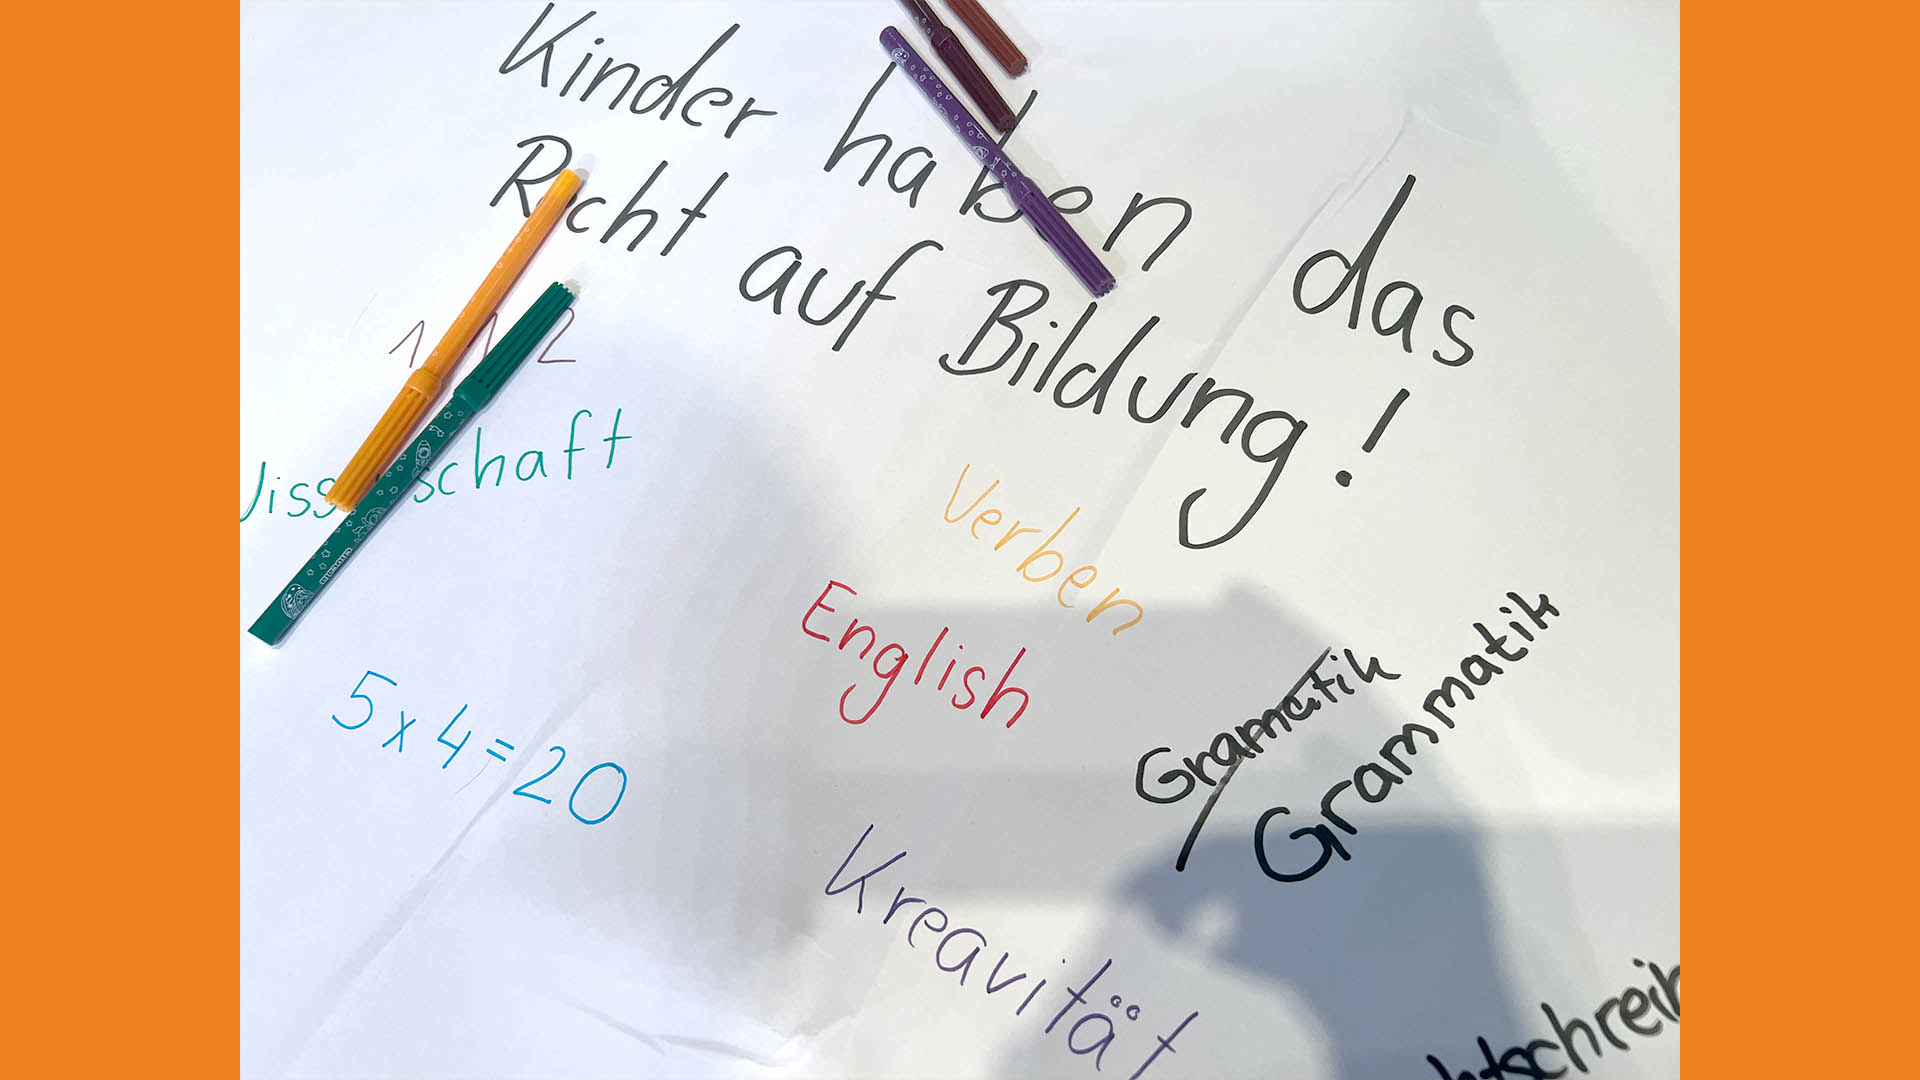 Kinder haben das
Recht auf Bildung!
1 1 2
Wissenschaft
Verben
English
5 x 4 = 20
Gramatik
Grammatik
Kreavität
htschreib